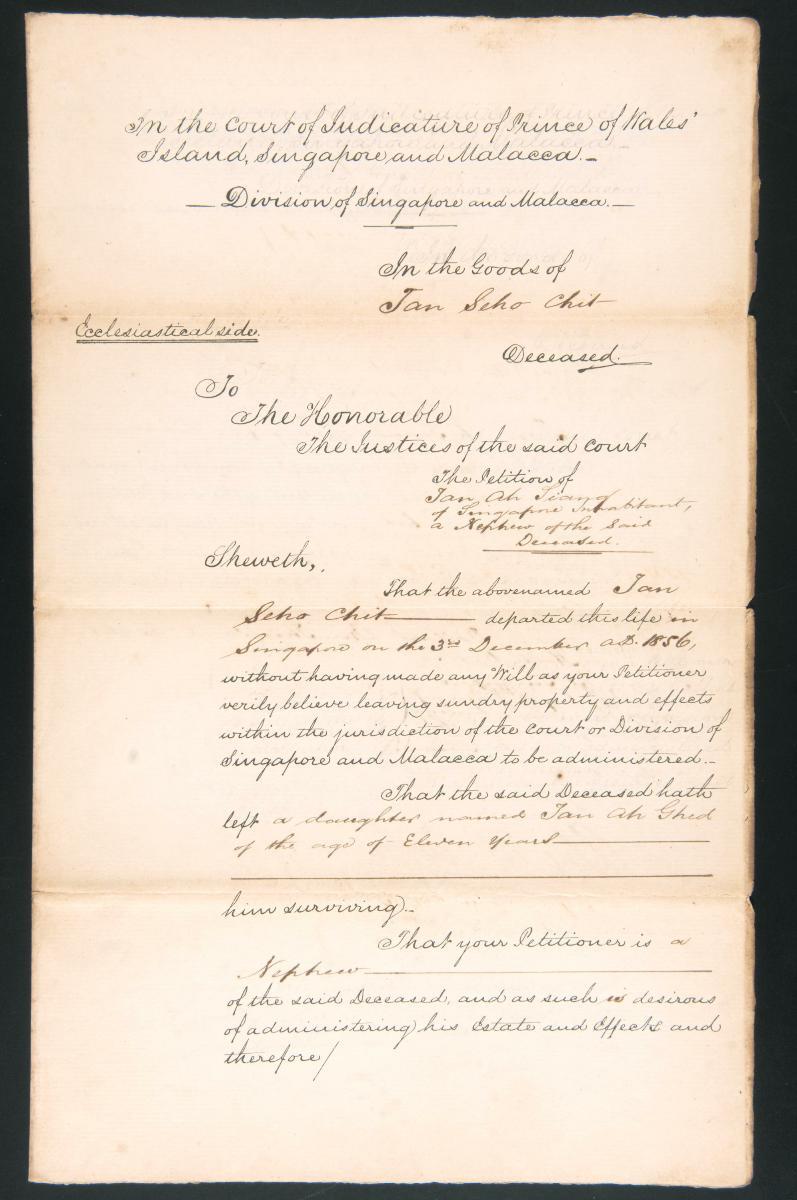 In the Court of Judicature of Prince of Wales'
Island, Singapore and Malacca.-
- Division of Singapore and Malacca. -
In the Goods of
Tan Seho Chit
Ecclesiastical side.
Deceased.
To
The Honorable
The Justices of the said Court
The Petition of
Tan Ah Siang
of Singapore Inhabitant,
a Nephew of the Said
Deceased.
Sheweth,.
That the abovenamed Tan
Seho Chit departed this life in
Singapore on the 3rd December A.D. 1856,
without having made any Will as your Petitioner
verily believe leaving sundry property and effects
within the jurisdiction of the Court or Division of
Singapore and Malacca to be administered.-
That the said Deceased hath
left a daughter named Tan Ah Ghed
of the age of Eleven Years
him surviving.-
That your Petitioner is a
Nephew
of the said Deceased, and as such is desirous
of administering his Estate and Effects and
therefore/